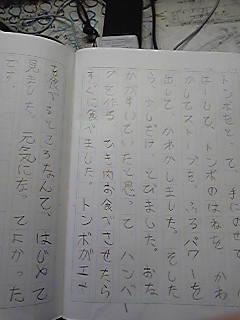 トンボをとって、手にのせて
はーして、トンボのはねを、かわ
かしてストーブを、ふるパワーを
出して、かわかしました。そした
ら、少しだけ、とびました。おな
かがすいていたと思って、ハンバー
グを作る、ひき肉お食べさせたら
すぐに食べました。トンボがエサ
を食べるところなんて、はじめて
見ました。元気になってよかった
です。